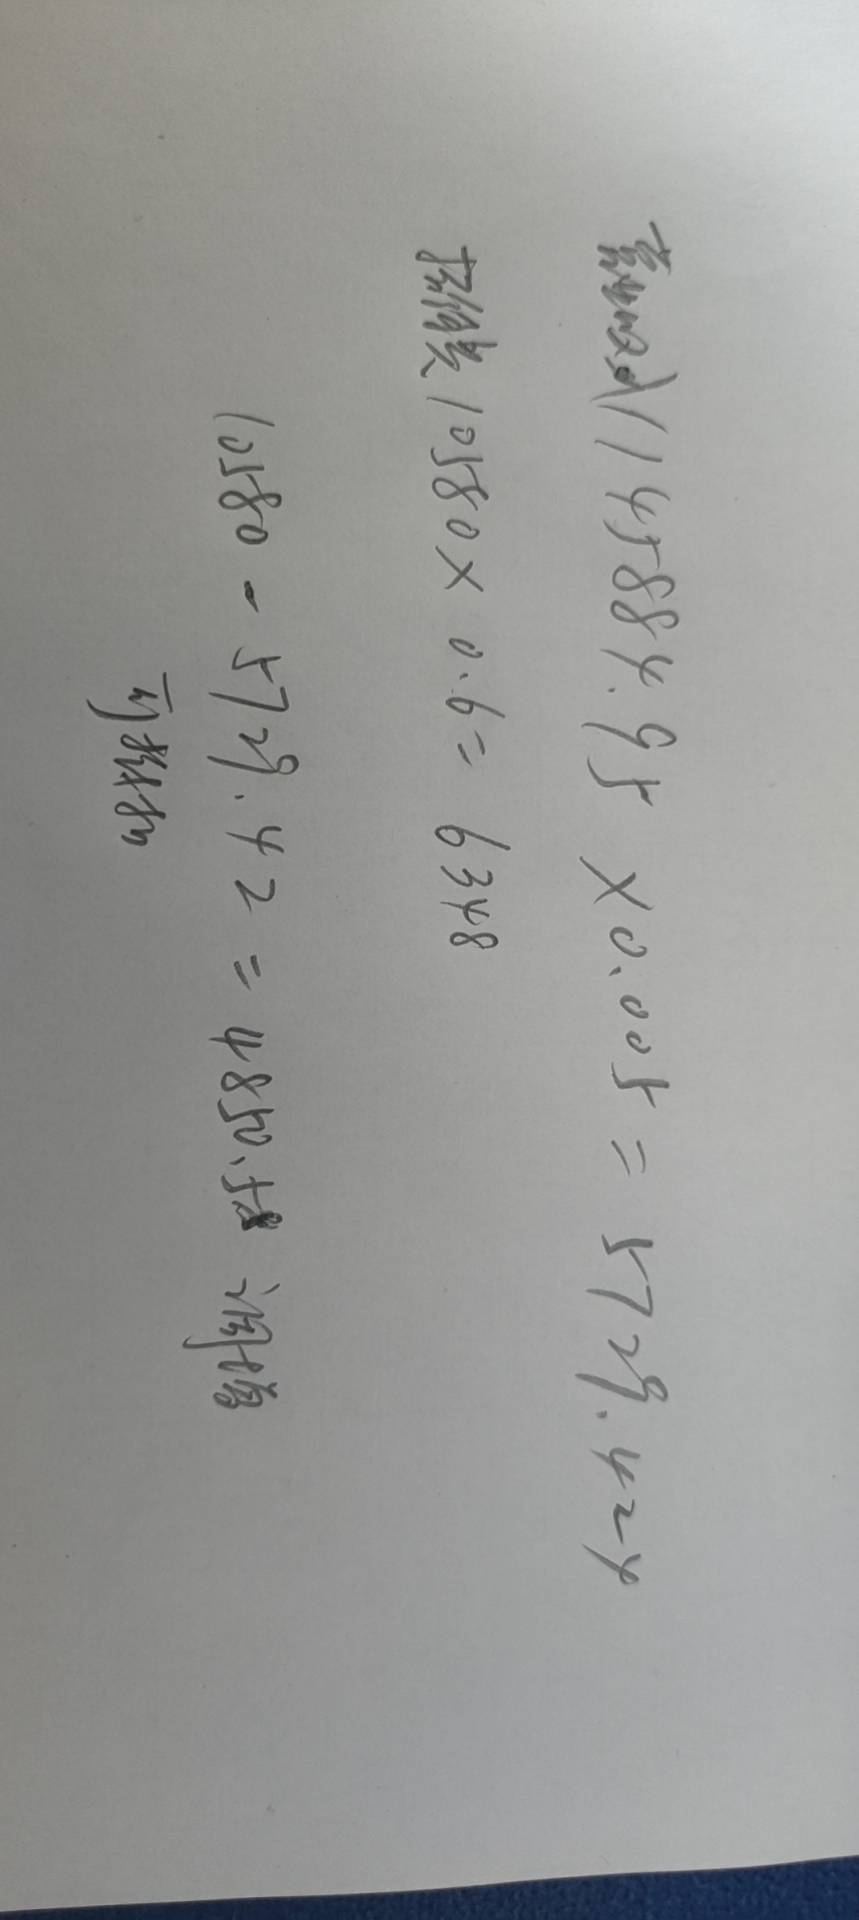 1145884.95 × 0.005 = 5729.424
招待费 10580 × 0.6 = 6348
10580 - 5729.42 = 4850.58 调增
可抵扣